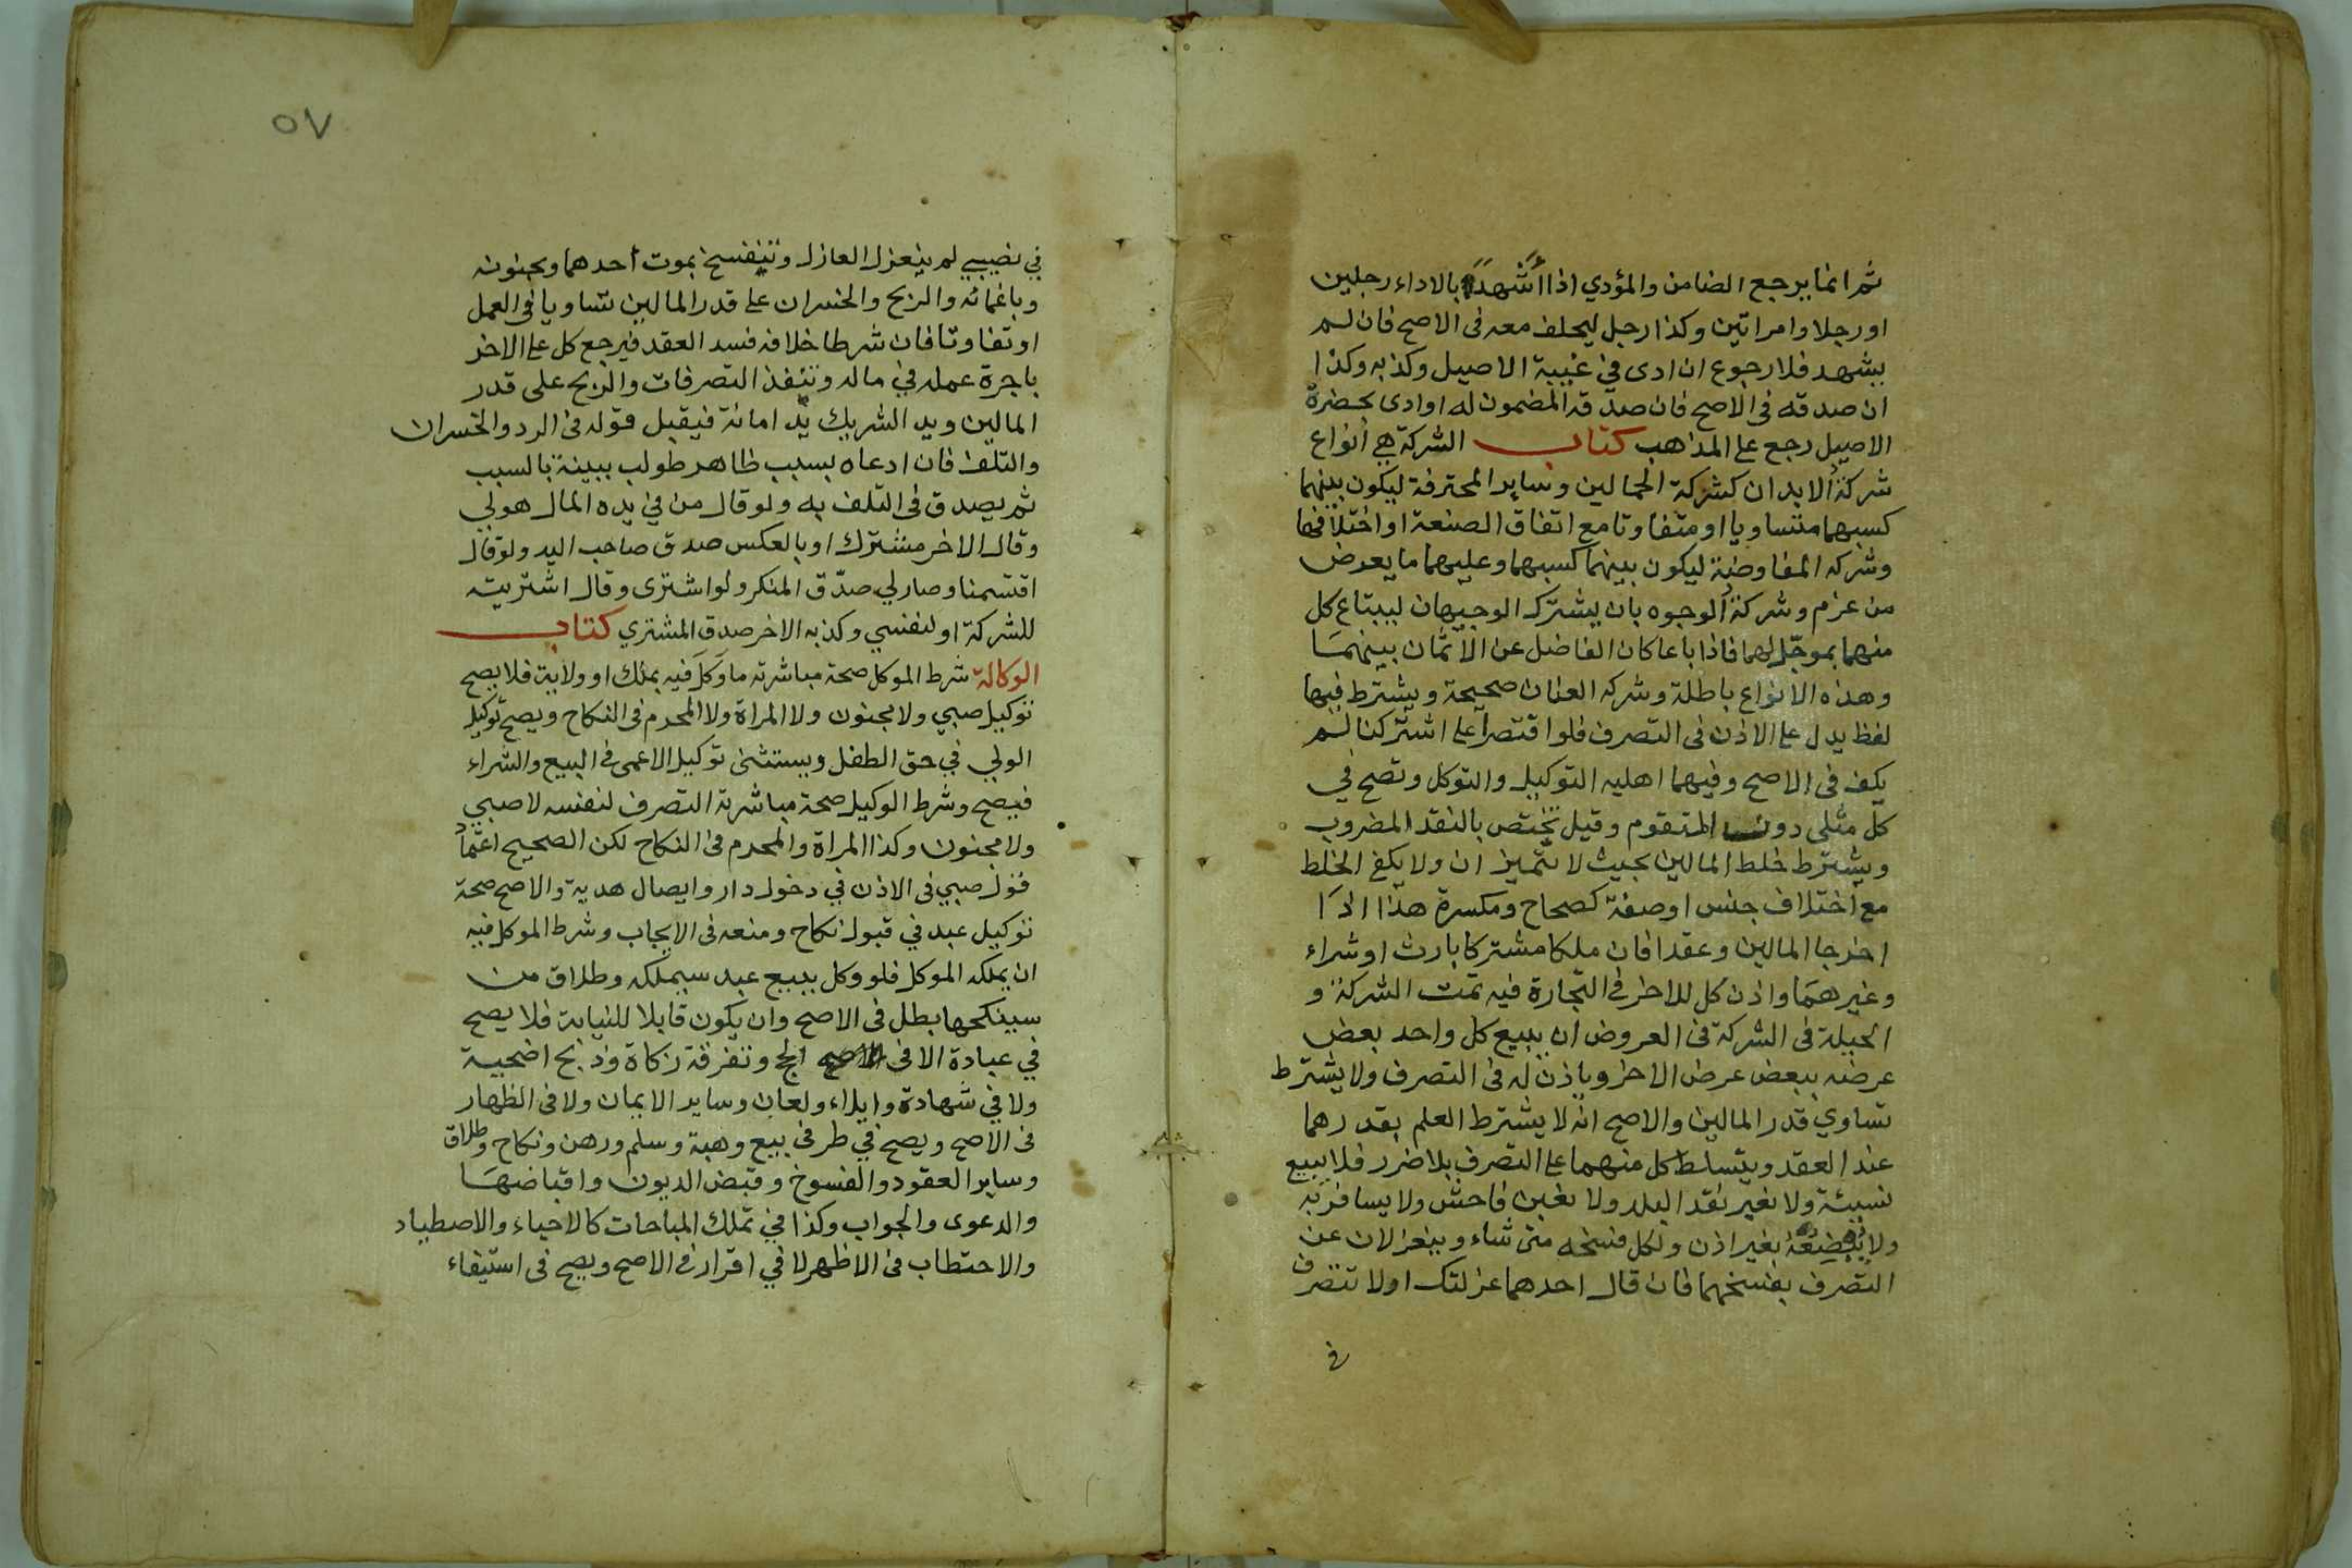 ثم انما يرجع الضامن والمؤدي اذا أشهدا بالاداء رجلين
او رجلا وامراتين وكذا رجل ليحلف معه فى الاصح فان لم
يشهد فلا رجوع ان ادى في غيبة الاصيل وكذبه وكذا
ان صدقه فى الاصح فان صدّقه المضمون له او ادى بحضرة
الاصيل رجع على المذاهب كتاب الشركة هي أنواع
شركة الابدان كشركة الحمالين وساير المحترفة ليكون بينهما
كسبهما متساويا او متفاوتا مع اتفاق الصنعة او اختلافها
وشركه المفاوضة ليكون بينهما كسبهما وعليهما ما يعرض
من غرم وشركة الوجوه بان يشترك الوجيهان ليبتاع كل
منهما بموجّل لهما فاذا باعا كان الفاضل عن الاثمان بينهما
وهذه الانواع باطلة وشركه العنان صحيحة ويشترط فيها
لفظ يدل على الاذن فى التصرف فلو اقتصرا على اشتركنا لم
يكف فى الاصح وفيهما اهليه التوكيل والتوكل وتصح في
كل مثلى دون المتقوم وقيل تختص بالنقد المضروب
ويشترط خلط المالين بحيث لا يتميزان ولا يكفى الخلط
مع اختلاف جنس او صفة كصحاح ومكسرة هذا اذا
اخرجا المالين وعقدا فان ملكا مشتركا بارث او شراء
وغيرهما واذن كل للاخر فى التجارة فيه تمت الشركة و
الحيلة فى الشركة فى العروض ان يبيع كل واحد بعض
عرضه ببعض عرض الاخر وياذن له فى التصرف ولا يشترط
تساوي قدر المالين والاصح انه لا يشترط العلم بقدرهما
عند العقد ويتسلط كل منهما على التصرف بلا ضرر فلا يبيع
نسيئة ولا بغير نقد البلد ولا بغبن فاحش ولا يسافر به
ولا يبضعه بغير اذن ولكل فسخه متى شاء وينعزلان عن
التصرف بفسخهما فان قال احدهما عزلتك او لا تتصرف
في
٥٧
في نصيبي لم ينعزل العازل وتنفسخ بموت أحدهما وبجنونه
وباغمائه والربح والخسران على قدر المالين تساويا فى العمل
او تفاوتا فان شرطا خلافه فسد العقد فيرجع كل على الاخر
باجرة عمله في ماله وتنفذ التصرفات والربح على قدر
المالين ويد الشريك يد امانة فيقبل قوله فى الرد والخسران
والتلف فان ادعاه بسبب ظاهر طولب ببينة بالسبب
ثم يصدق فى التلف به ولو قال من في يده المال هو لي
وقال الاخر مشترك او بالعكس صدق صاحب اليد ولو قال
اقتسمنا وصار لي صدّق المنكر ولو اشترى وقال اشتريته
للشركة او لنفسي وكذبه الاخر صدق المشتري كتاب
الوكالة شرط الموكل صحة مباشرته ما وكل فيه بملك او ولاية فلا يصح
توكيل صبي ولا مجنون ولا المراة ولا المحرم فى النكاح ويصح توكيل
الولي في حق الطفل ويستثنى توكيل الاعمى فى البيع والشراء
فيصح وشرط الوكيل صحة مباشرته التصرف لنفسه لا صبي
ولا مجنون وكذا المراة والمحرم فى النكاح لكن الصحيح اعتماد
قول صبي فى الاذن في دخول دار وايصال هدية والاصح صحة
توكيل عبد في قبول نكاح ومنعه فى الايجاب وشرط الموكل فيه
ان يملكه الموكل فلو وكل ببيع عبد سيملكه وطلاق من
سينكحها بطل فى الاصح وان يكون قابلا للنيابة فلا يصح
في عبادة الا فى الحج وتفرقة زكاة وذبح اضحية
ولا في شهادة وايلاء ولعان وساير الايمان ولا فى الظهار
فى الاصح ويصح في طرفى بيع وهبة وسلم ورهن ونكاح وطلاق
وساير العقود والفسوخ وقبض الديون واقباضها
والدعوى والجواب وكذا في تملك المباحات كالاحياء والاصطياد
والاحتطاب فى الاظهر لا في اقرار فى الاصح ويصح فى استيفاء